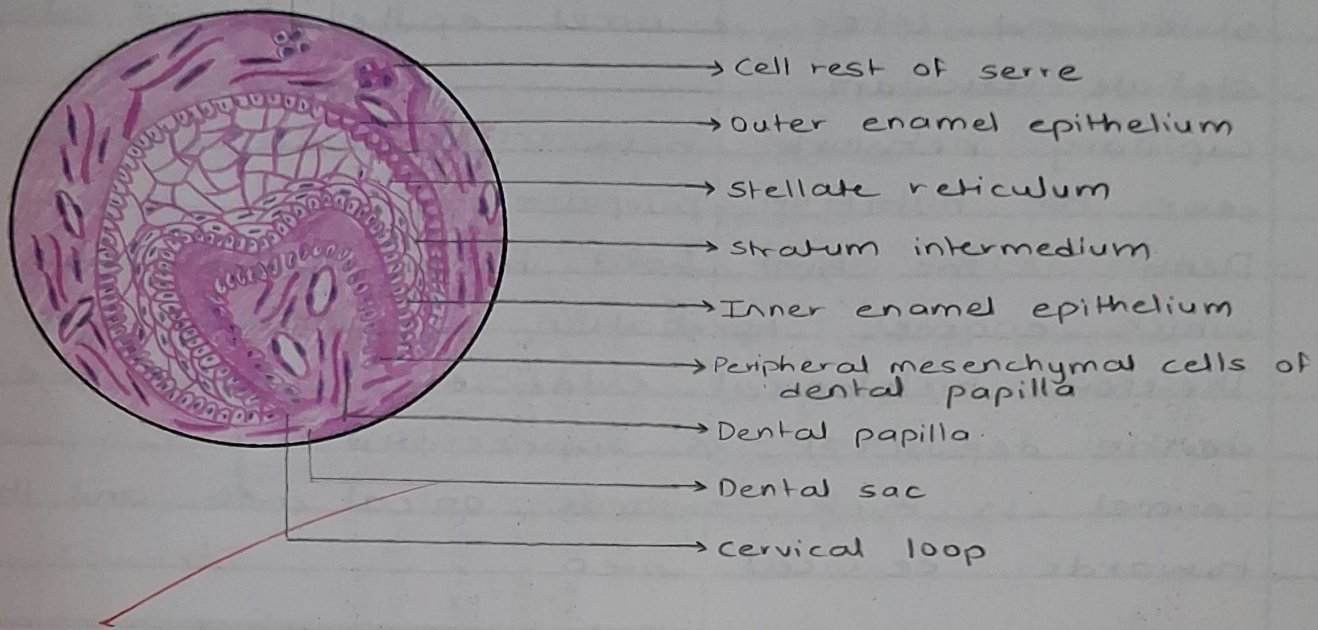 Cell rest of serre
Outer enamel epithelium
Stellate reticulum
Stratum intermedium
Inner enamel epithelium
Peripheral mesenchymal cells of
dental papilla
Dental papilla.
Dental sac
Cervical loop